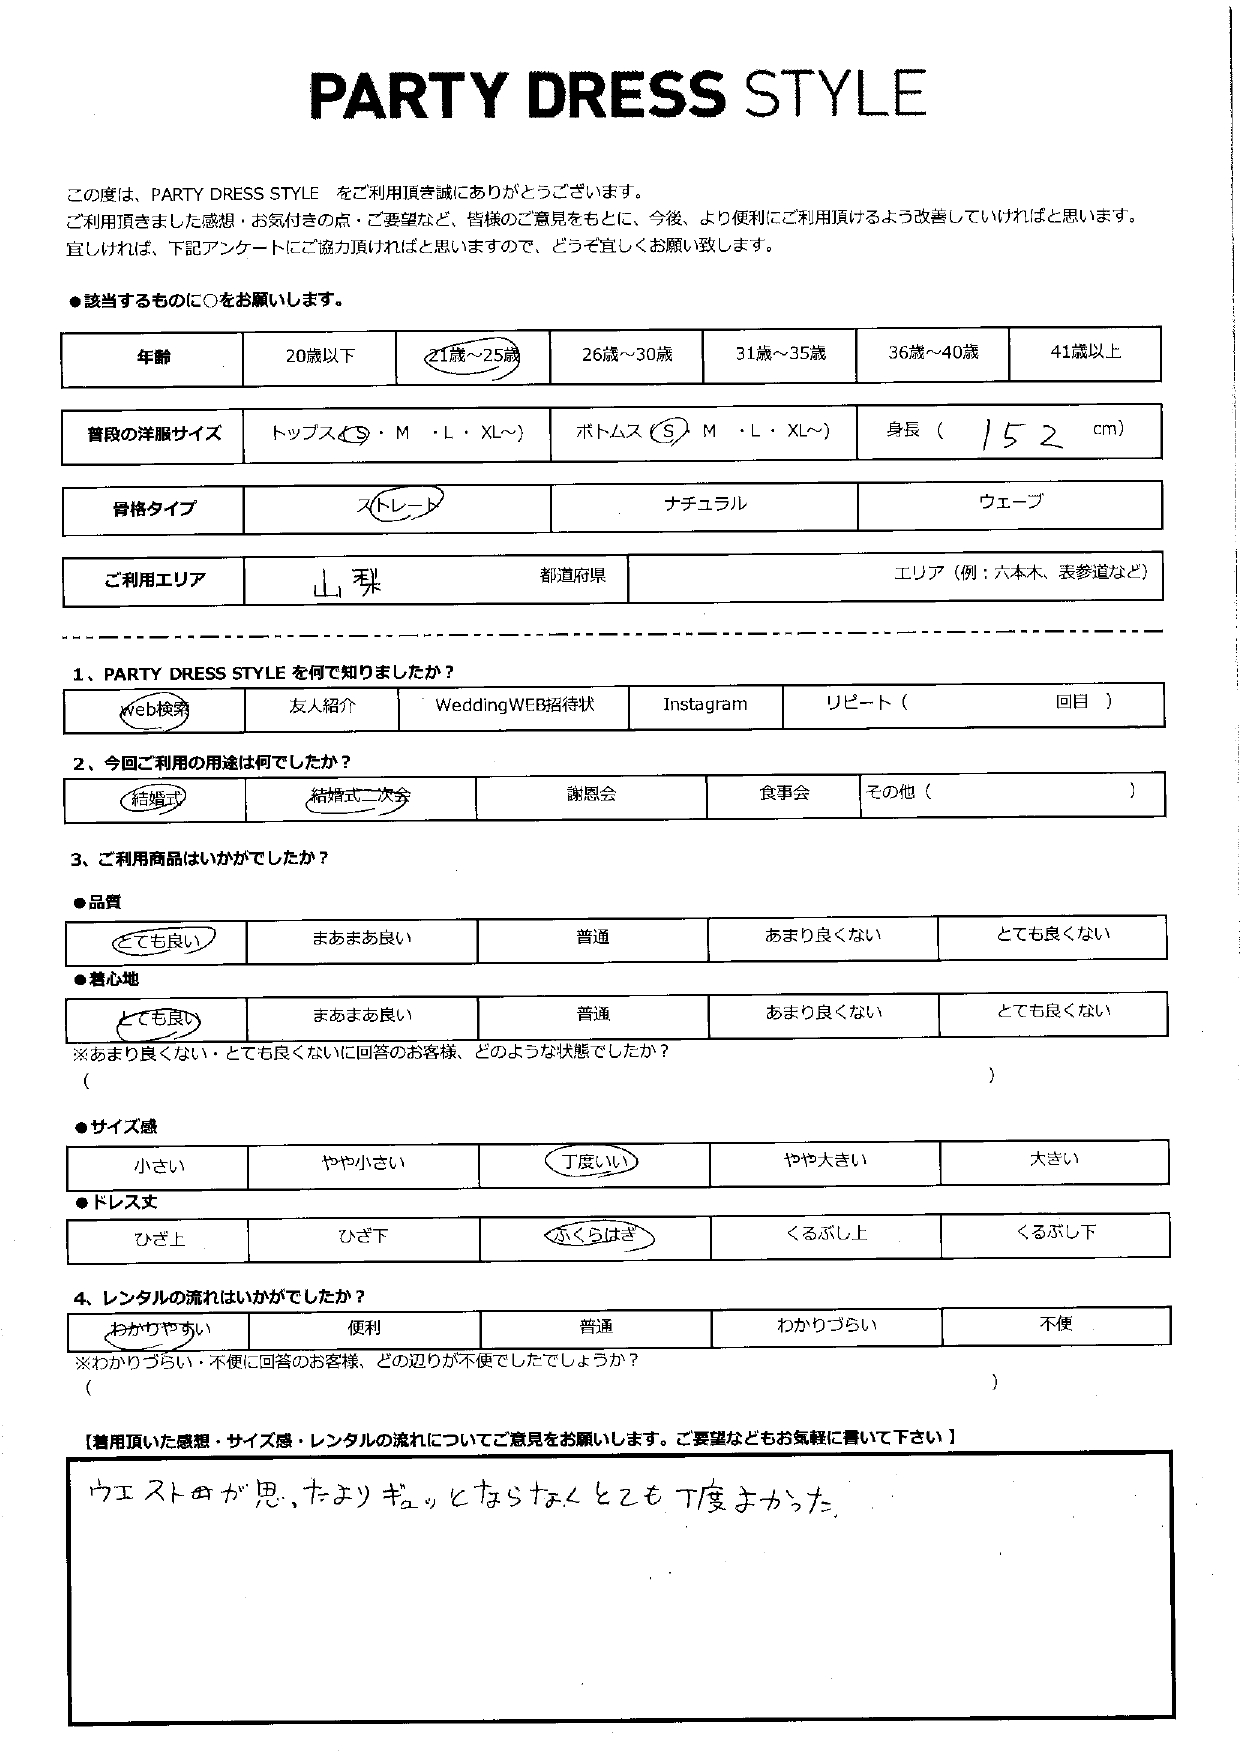 PARTY DRESS STYLE
この度は、PARTY DRESS STYLE をご利用頂き誠にありがとうございます。
ご利用頂きました感想・お気付きの点・ご要望など、皆様のご意見をもとに、今後、より便利にご利用頂けるよう改善していければと思います。
宜しければ、下記アンケートにご協力頂ければと思いますので、どうぞ宜しくお願い致します。
●該当するものに○をお願いします。
年齢 20歳以下 21歳～25歳 26歳～30歳 31歳～35歳 36歳～40歳 41歳以上
普段の洋服サイズ トップス(S・M ・L・XL～) ボトムス(S・M ・L・XL～) 身長 ( 152 cm)
骨格タイプ ストレート ナチュラル ウェーブ
ご利用エリア 山梨 都道府県 エリア（例：六本木、表参道など）
1、PARTY DRESS STYLE を何で知りましたか？
Web検索 友人紹介 WeddingWEB招待状 Instagram リピート（ 回目 ）
2、今回ご利用の用途は何でしたか？
結婚式 結婚式二次会 謝恩会 食事会 その他（ ）
3、ご利用商品はいかがでしたか？
●品質
とても良い まあまあ良い 普通 あまり良くない とても良くない
●着心地
とても良い まあまあ良い 普通 あまり良くない とても良くない
※あまり良くない・とても良くないに回答のお客様、どのような状態でしたか？
（ ）
●サイズ感
小さい やや小さい 丁度いい やや大きい 大きい
●ドレス丈
ひざ上 ひざ下 ふくらはぎ くるぶし上 くるぶし下
4、レンタルの流れはいかがでしたか？
わかりやすい 便利 普通 わかりづらい 不便
※わかりづらい・不便に回答のお客様、どの辺りが不便でしたでしょうか？
（ ）
【着用頂いた感想・サイズ感・レンタルの流れについてご意見をお願いします。ご要望などもお気軽に書いて下さい】
ウエスト が思ったよりギュッとならなくとても丁度よかった。